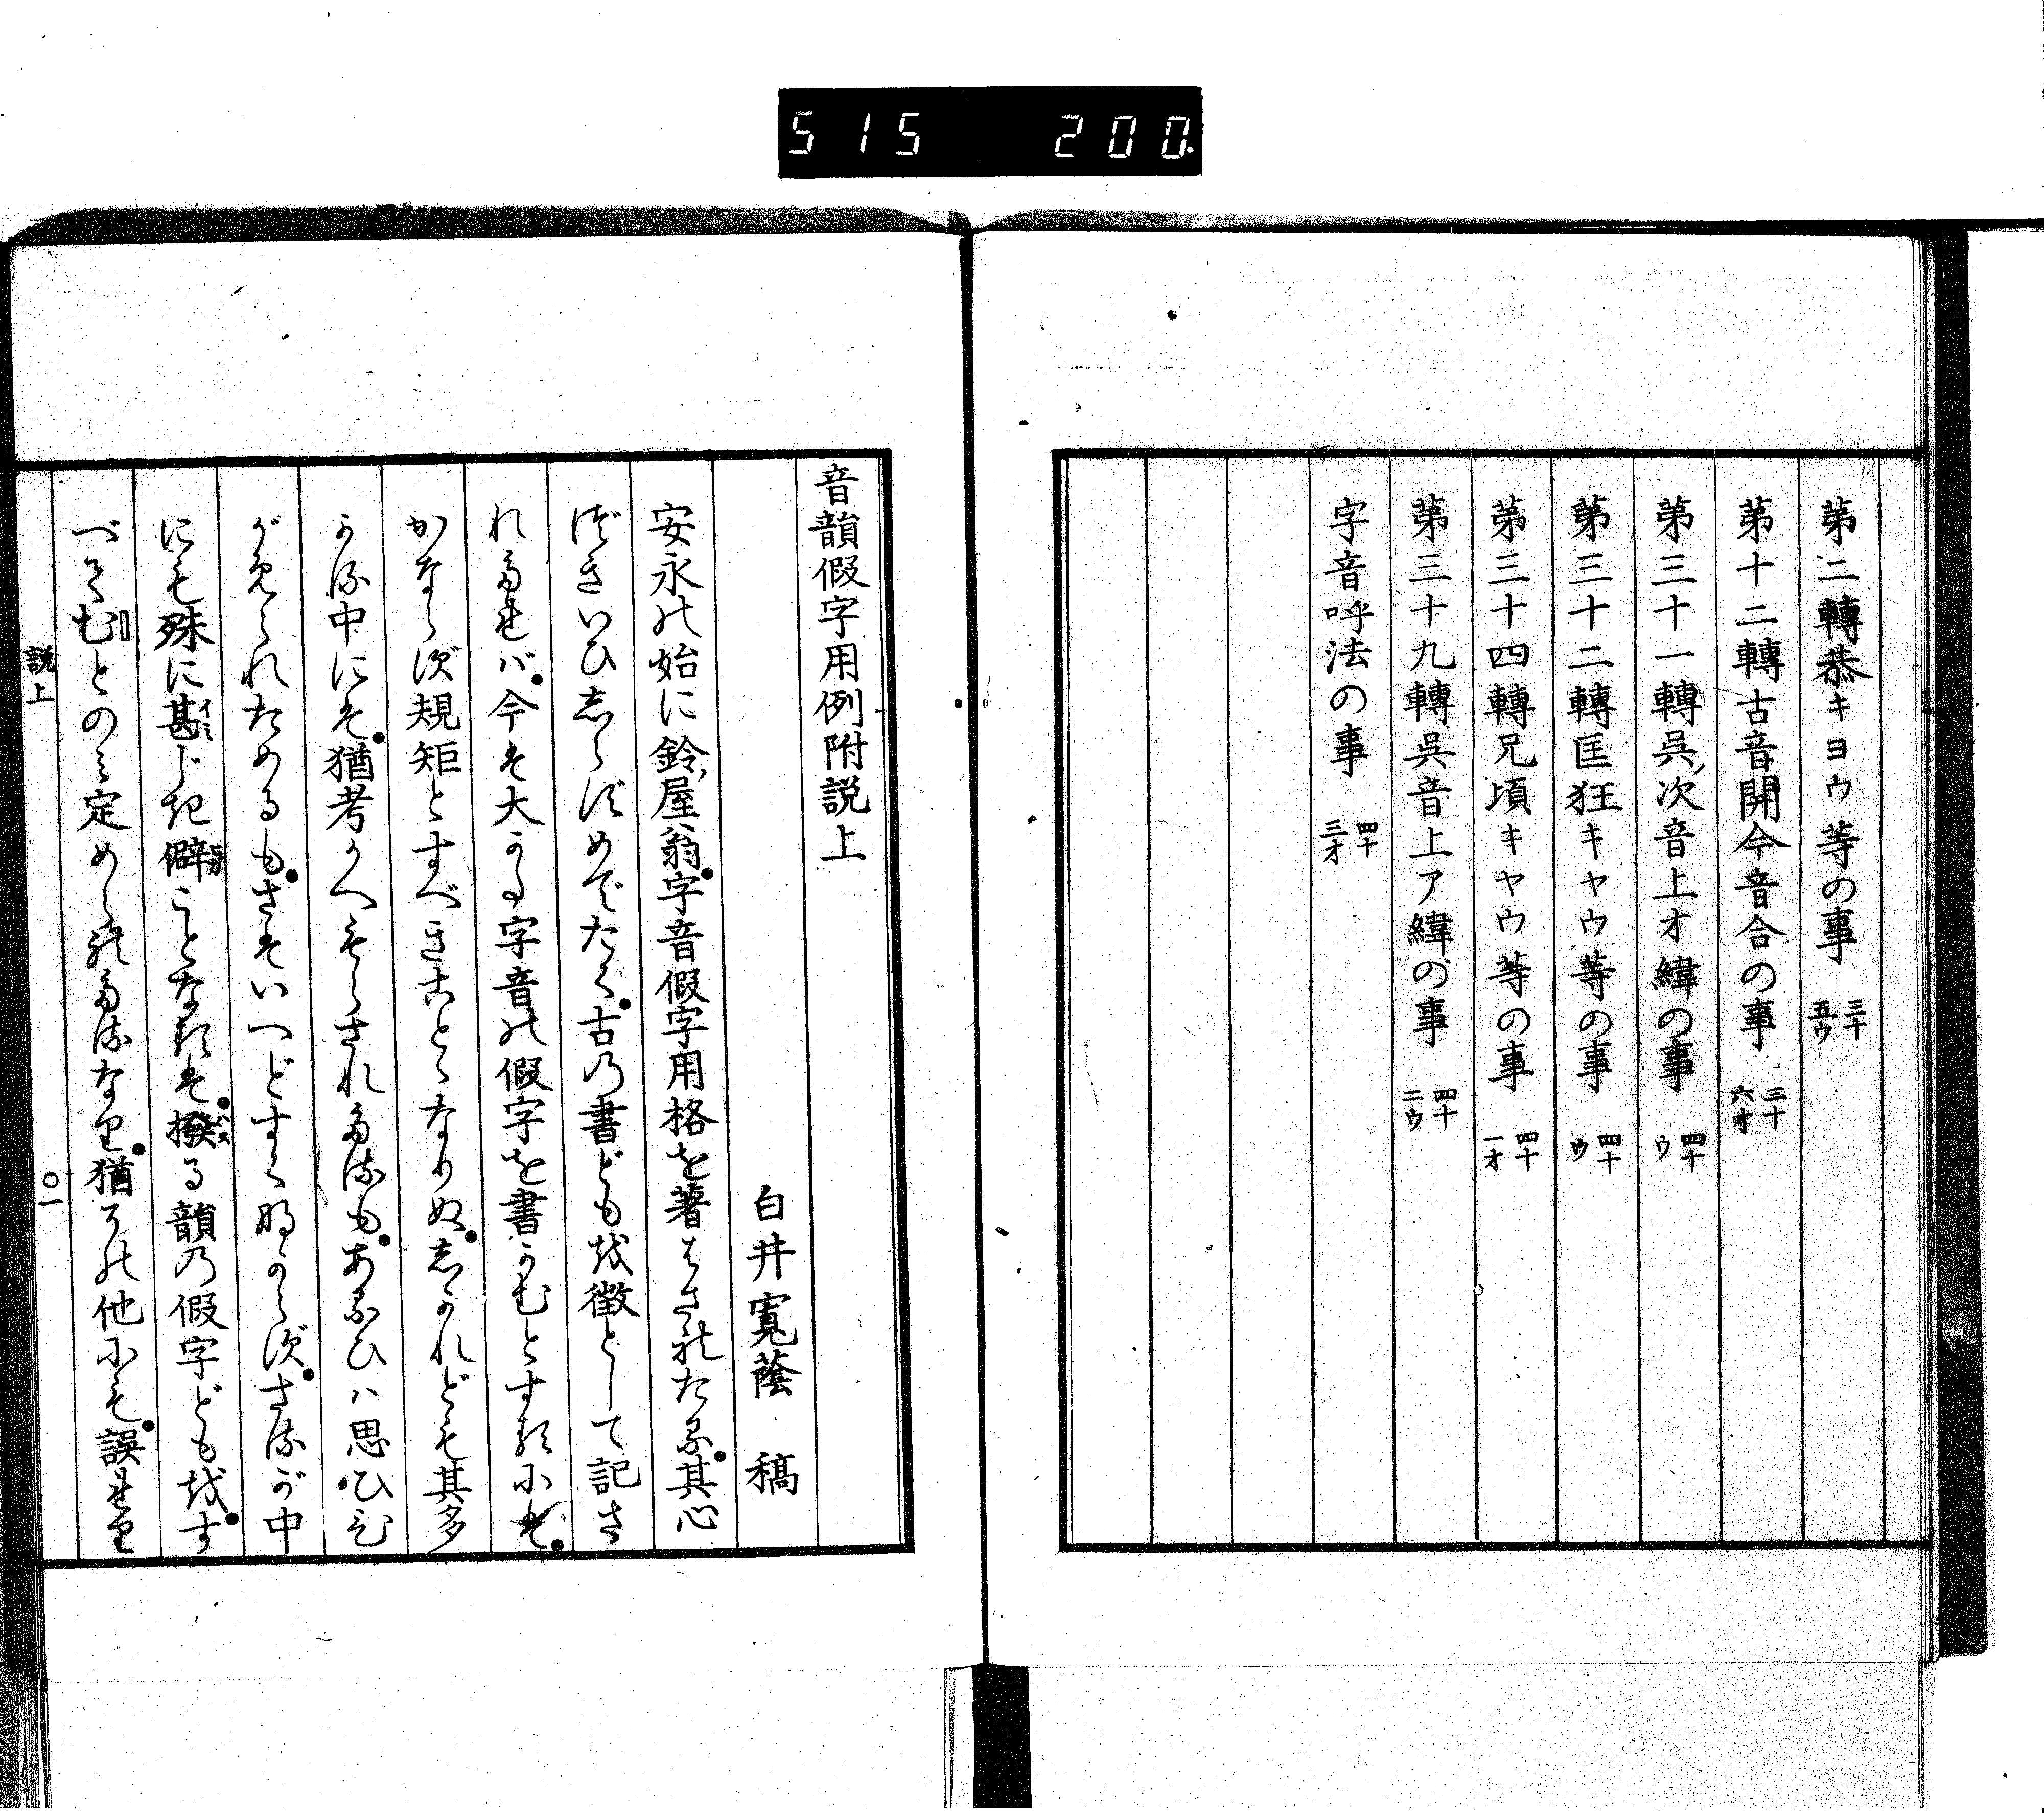 515 200.
第二轉恭キヨウ等の事 三十五ウ
第十二轉古音開今音合の事 三十六オ
第三十一轉呉次音上オ緯の事 四十ウ
第三十二轉匡狂キヤウ等の事 四十ウ
第三十四轉兄頃キヤウ等の事 四十一オ
第三十九轉呉音上ア緯の事 四十二ウ
字音呼法の事 四十三オ
音韻假字用例附説上
白井寛蔭 稿
安永の始に鈴ノ屋ノ翁字音假字用格を著はされたる其心
づきいひしらずめでたく古の書どもを徴として記さ
れたれば今は大かた字音の假字を書かむとするには
かならず規矩とすべきこととなりぬしかれども其多
かる中には猶考かへもらされたるもあるひハ思ひひ
がめられたるもさはいへどすくなからずさるが中
にも殊に甚イミじき僻ヒガことなるは撥ハヌる韻の假字どもをす
べてむとのみ定めらけたるなり猶その他にも誤れり
説上
〇一